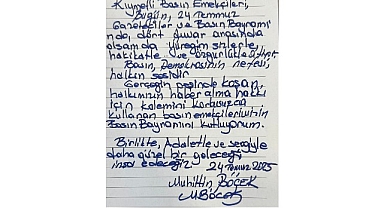 Kıymetli Basın Emekçileri,
Bugün, 24 Temmuz
Gazeteciler ve Basın Bayramı'
nda, dört duvar arasında
olsamda yüreğim sizlerle,
hakikatle ve özgürlükledir.
Basın, Demokrasinin nefesi,
halkın sesidir
Gerçeğin peşinde koşan,
halkımızın haber alma hakkı
için kalemini korkusuzca
kullanan basın emekçilerimizin
Basın Bayramını kutluyorum.
Birlikte, Adaletle ve sevgiyle
daha güzel bir geleceği
inşa edeceğiz
24 Temmuz 2025
Muhittin BÖCEK
MBöcek